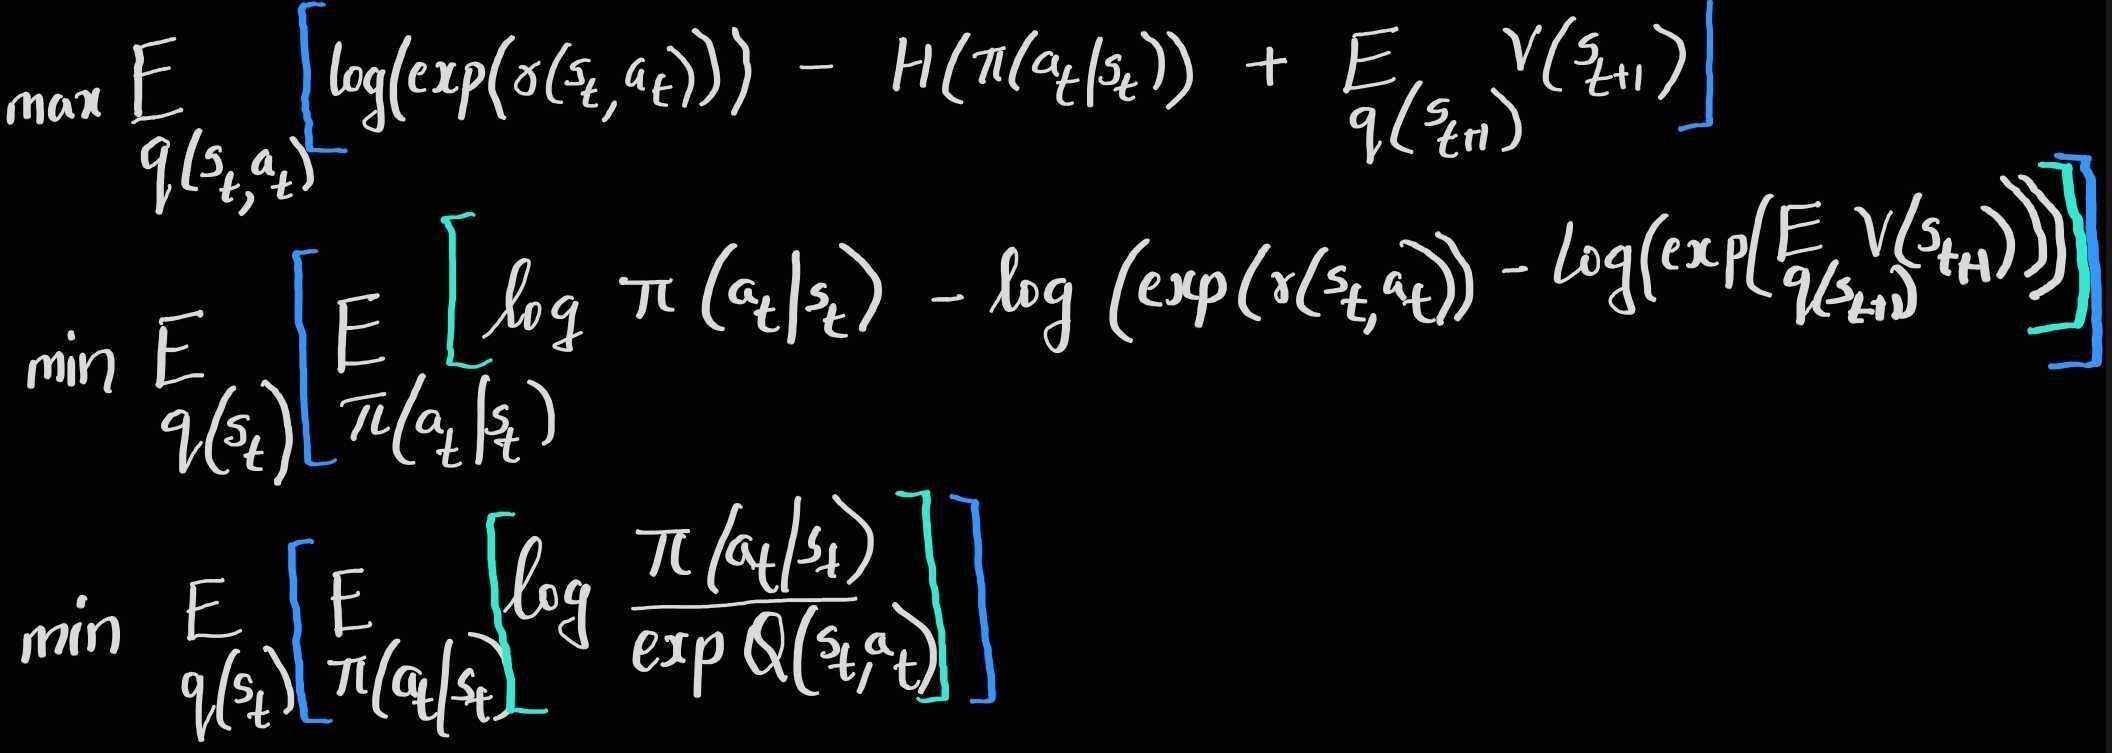 max E_{q(s_t, a_t)} [ log(exp(r(s_t, a_t))) − H(π(a_t|s_t)) + E_{q(s_{t+1})} V(s_{t+1}) ]
min E_{q(s_t)} [ E_{π(a_t|s_t)} [ log π(a_t|s_t) − log(exp(r(s_t, a_t))) − log(exp(E_{q(s_{t+1})} V(s_{t+1}))) ] ]
min E_{q(s_t)} [ E_{π(a_t|s_t)} [ log π(a_t|s_t) / exp Q(s_t, a_t) ] ]